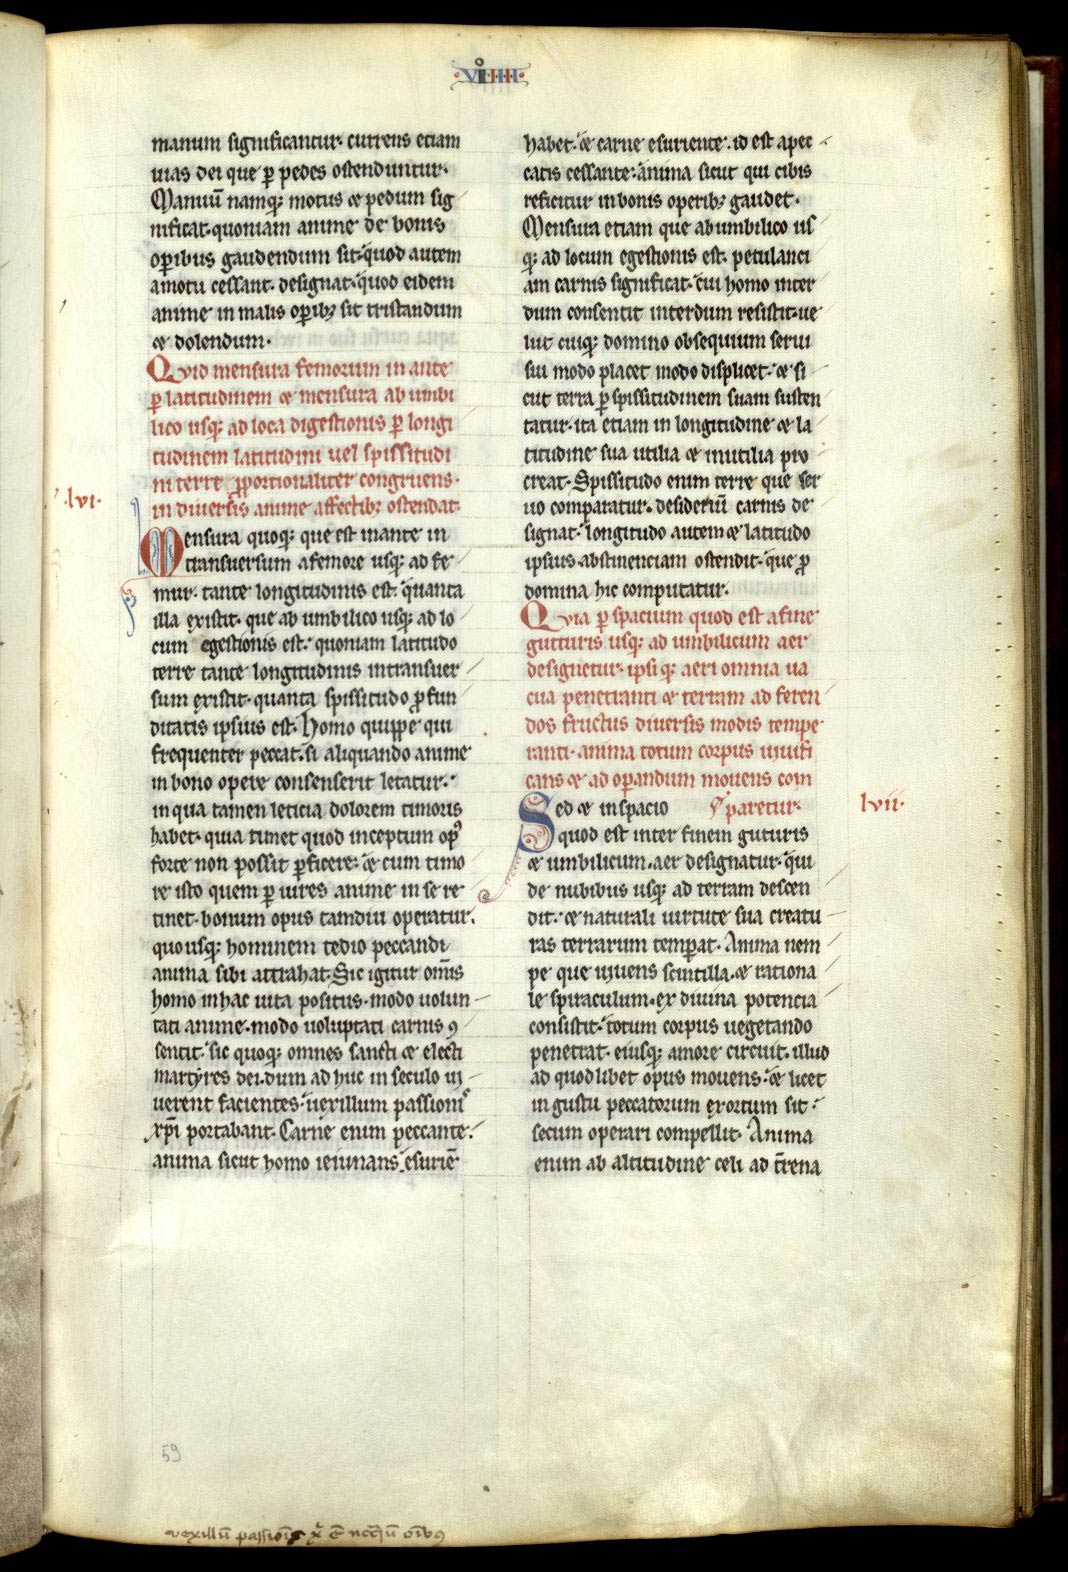 VIIII
manum significantur. currens etiam
uias dei que ꝑ pedes ostenduntur.
Manuū namqꝫ motus ⁊ pedum sig
nificat. quoniam anime de bonis
oꝑibus gaudendum sit. quod autem
a motu cessant. designat. quod eidem
anime in malis oꝑibꝫ sit tristandum
⁊ dolendum.
Quid mensura femorum in ante
ꝑ latitudinem ⁊ mensura ab umbi
lico usqꝫ ad loca digestionis ꝑ longi
tudinem latitudini uel spissitudi
ni terre ꝓportionaliter congruens.
in diuersis anime affectibꝫ ostendat.
.lvi.
Mensura quoqꝫ que est in ante in
transuersum a femore usqꝫ ad fe
mur. tante longitudinis est. quanta
illa existit. que ab umbilico usqꝫ ad lo
cum egestionis est. quoniam latitudo
terre tante longitudinis in transuer
sum existit. quanta spissitudo ꝓfun
ditatis ipsius est. Homo quippe qui
frequenter peccat. si aliquando anime
in bono opere consenserit letatur.
in qua tamen leticia dolorem timoris
habet. quia timet quod inceptum opꝰ
forte non possit ꝑficere. ⁊ cum timo
re isto quem ꝑ uires anime in se re
tinet. bonum opus tamdiu operatur.
quousqꝫ hominem tedio peccandi
anima sibi attrahat. Sic igitur om̄is
homo in hac uita positus. modo uolun
tati anime. modo uoluptati carnis ꝯ
sentit. sic quoqꝫ omnes sancti ⁊ electi
martyres dei. dum ad huc in seculo ui
uerent facientes. uexillum passionis
xp̄i portabant. Carne enim peccante.
anima sicut homo ieiunans. esuriē
habet. ⁊ carne esuriente. id est a pec
catis cessante. anima sicut qui cibis
reficitur in bonis operibꝫ gaudet.
Mensura etiam que ab umbilico us
qꝫ ad locum egestionis est. petulanci
am carnis significat. cui homo inter
dum consentit interdum resistit. ue
lut cuiqꝫ domino obsequium serui
sui modo placet modo displicet. ⁊ si
cut terra ꝑ spissitudinem suam susten
tatur. ita etiam in longitudine ⁊ la
titudine sua utilia ⁊ inutilia pro
creat. Spissitudo enim terre que ser
uo comparatur. desideriū carnis de
signat. longitudo autem ⁊ latitudo
ipsius abstinenciam ostendit. que ꝓ
domina hic computatur.
Quia ꝑ spacium quod est a fine
gutturis usqꝫ ad umbilicum aer
designetur. ipsi qꝫ aeri omnia ua
cua penetranti ⁊ terram ad feren
dos fructus diuersis modis tempe
ranti. anima totum corpus uiuifi
cans ⁊ ad oꝑandum mouens com
paretur.
lvii.
Sed ⁊ in spacio
quod est inter finem guturis
⁊ umbilicum. aer designatur. qui
de nubibus usqꝫ ad terram descen
dit. ⁊ naturali uirtute sua creatu
ras terrarum temꝑat. Anima nem
pe que uiuens scintilla. ⁊ rationa
le spiraculum. ex diuina potencia
consistit. totum corpus uegetando
penetrat. eiusqꝫ amore circuit. illud
ad quodlibet opus mouens. ⁊ licet
in gustu peccatorum exortum sit.
secum operari compellit. Anima
enim ab altitudine celi ad t̄rena
59
vexillū passionis